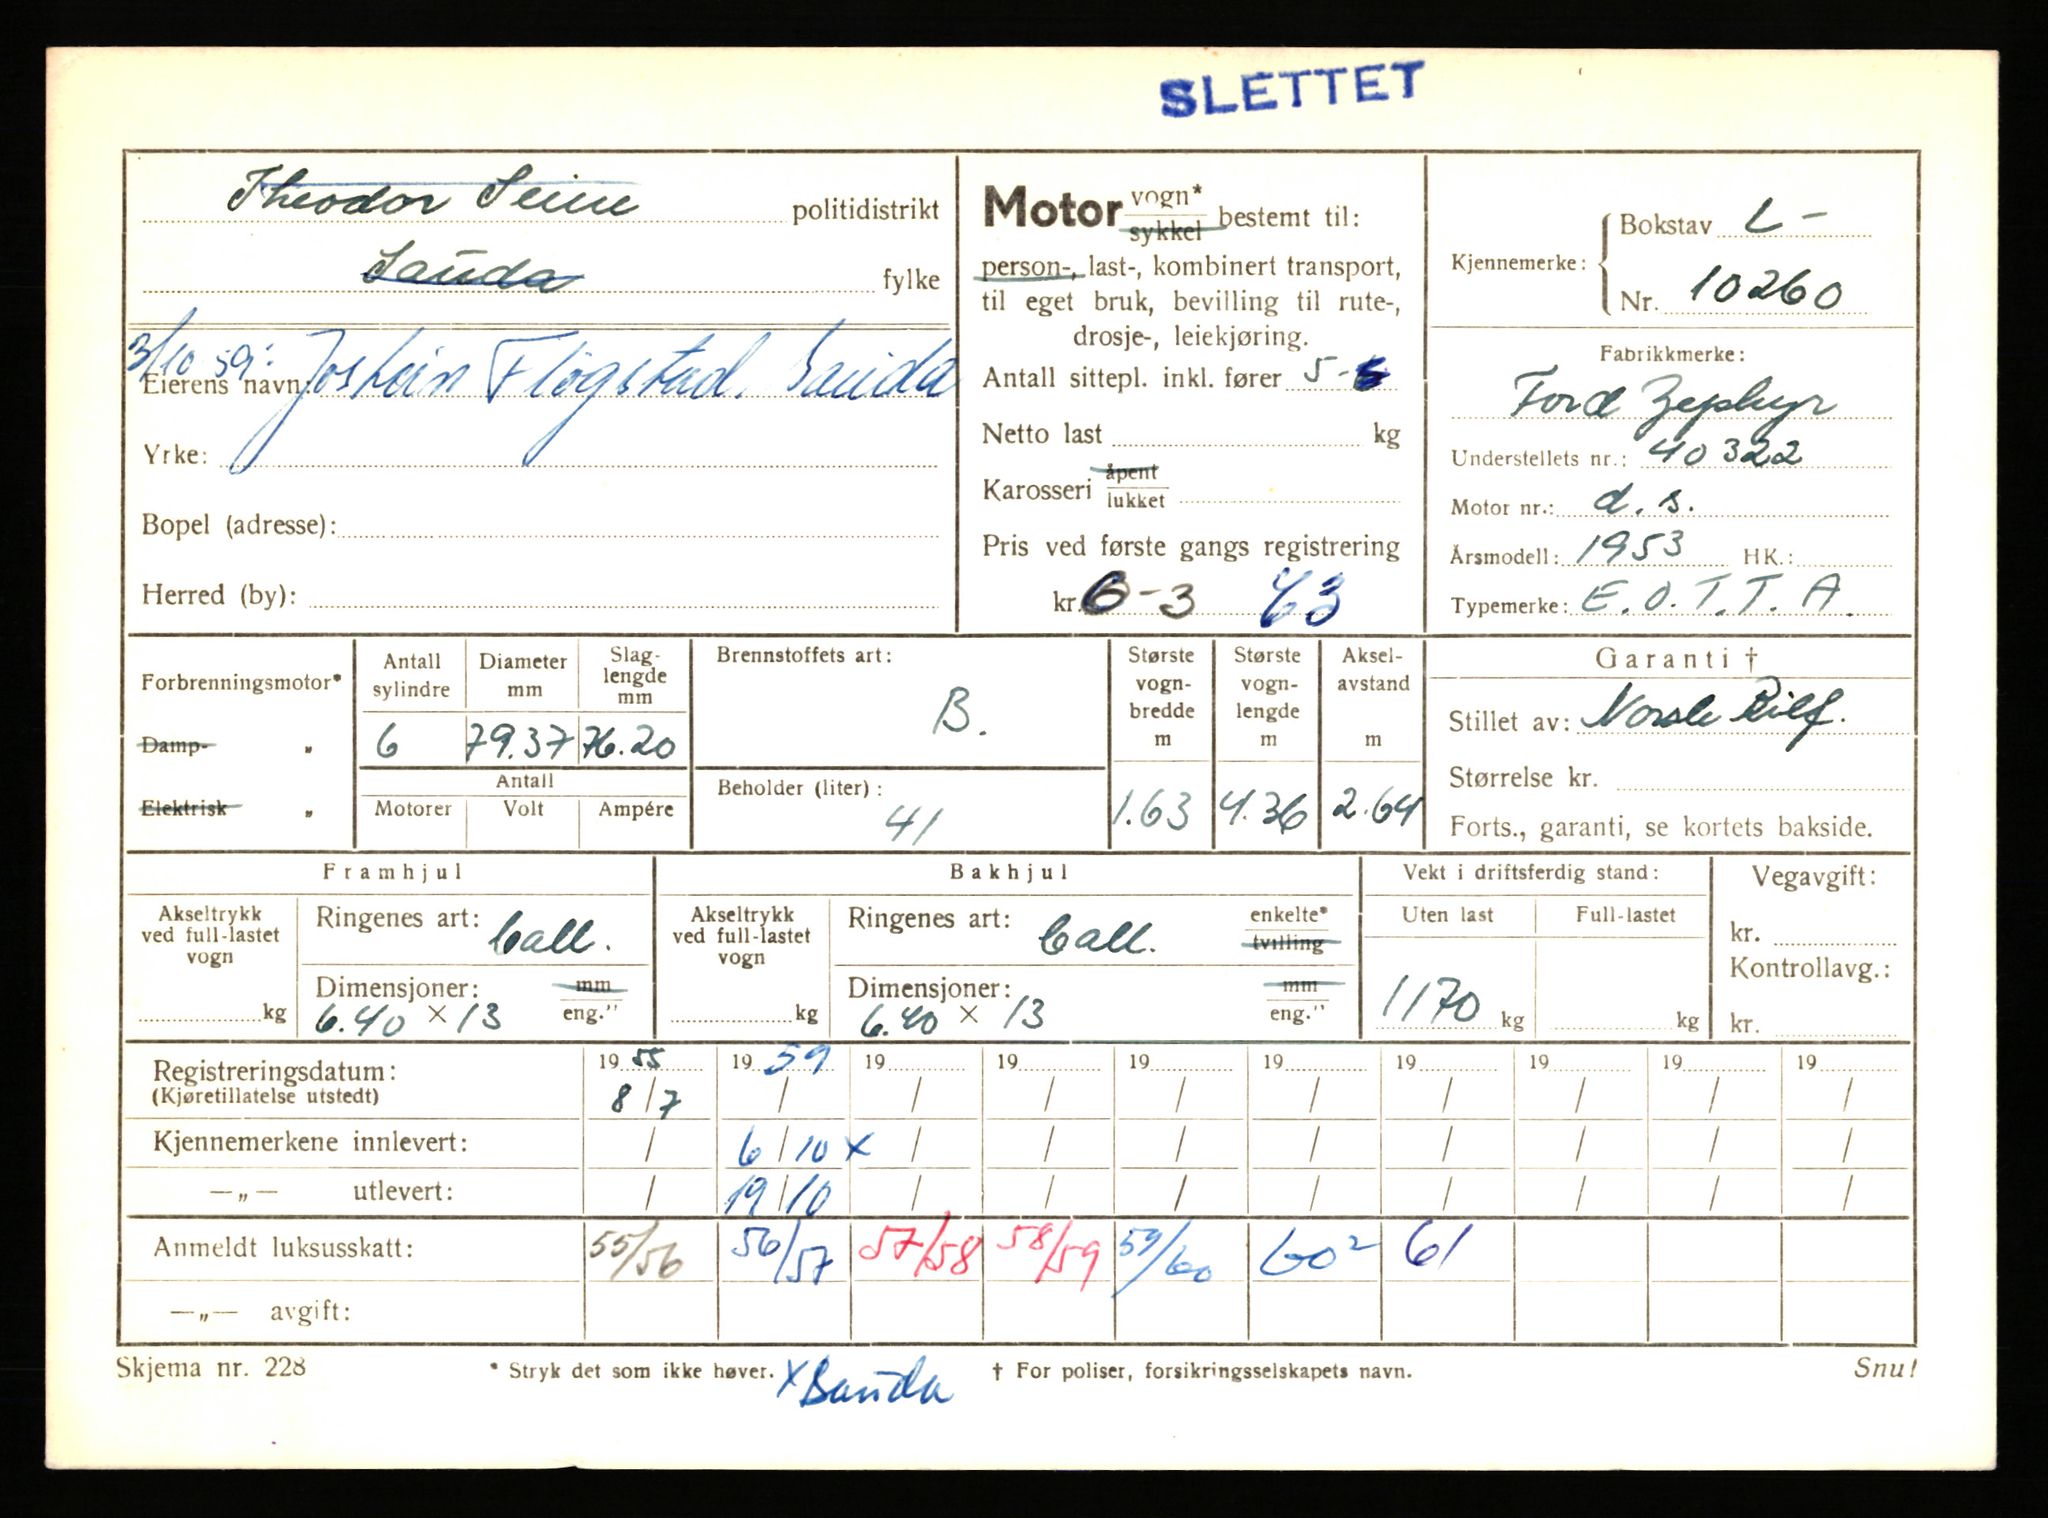 SLETTET
Theodor Seim politidistrikt
Sauda fylke
3/10 59: Eierens navn: Jostein Fløgstad. Sauda
Yrke:
Bopel (adresse):
Herred (by):
Motor vogn* sykkel bestemt til:
person-, last-, kombinert transport,
til eget bruk, bevilling til rute-,
drosje-, leiekjøring.
Antall sittepl. inkl. fører 5-
Netto last kg
Karosseri åpent lukket
Pris ved første gangs registrering
kr. 6-3 63
Kjennemerke: Bokstav L-
Nr. 10260
Fabrikkmerke:
Ford Zephyr
Understellets nr.: 40322
Motor nr.: d.s.
Årsmodell: 1953 HK.:
Typemerke: E.O.T.T.A.
Forbrenningsmotor*
Damp- „
Elektrisk „
Antall sylindre Diameter mm Slaglengde mm
6 79.37 76.20
Antall
Motorer Volt Ampére
Brennstoffets art:
B.
Beholder (liter):
41
Største vognbredde m Største vognlengde m Akselavstand m
1.63 4.36 2.64
Garanti †
Stillet av: Norsk Bilf.
Størrelse kr.
Forts., garanti, se kortets bakside.
Framhjul
Akseltrykk ved full-lastet vogn
kg
Ringenes art: Ball.
Dimensjoner: mm eng."
6.40 × 13
Bakhjul
Akseltrykk ved full-lastet vogn
kg
Ringenes art: Ball. enkelte* tvilling
Dimensjoner: mm eng."
6.40 × 13
Vekt i driftsferdig stand:
Uten last Full-lastet
1170 kg kg
Vegavgift:
kr.
Kontrollavg.:
kr.
Registreringsdatum: 19 55 19 59 19 19 19 19 19 19 19 19
(Kjøretillatelse utstedt) 8/7 / / / / / / / / /
Kjennemerkene innlevert: / 6/10 x / / / / / / / /
—„— utlevert: / 19/10 / / / / / / / /
Anmeldt luksusskatt: 55/56 56/57 57/58 58/59 59/60 60² 61
—„— avgift:
Skjema nr. 228 * Stryk det som ikke høver. x Sauda † For poliser, forsikringsselskapets navn. Snu!